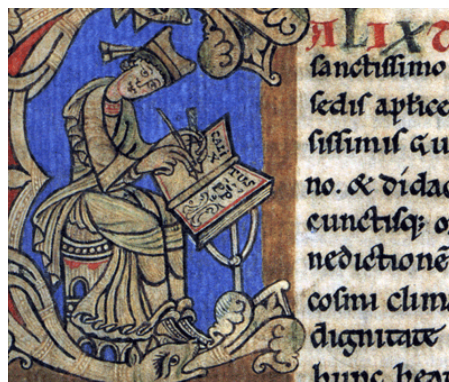 CALIX
TUS
ALIX
sanctissimo
sedis aplice
sissimis Gu
no. & didac
cunctisq; o
nedictionē
cosmi clima
dignitate
hunc bea